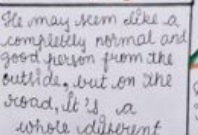 He may seem like a
completely normal and
good person from the
outside, but on the
road, it's a
whole different